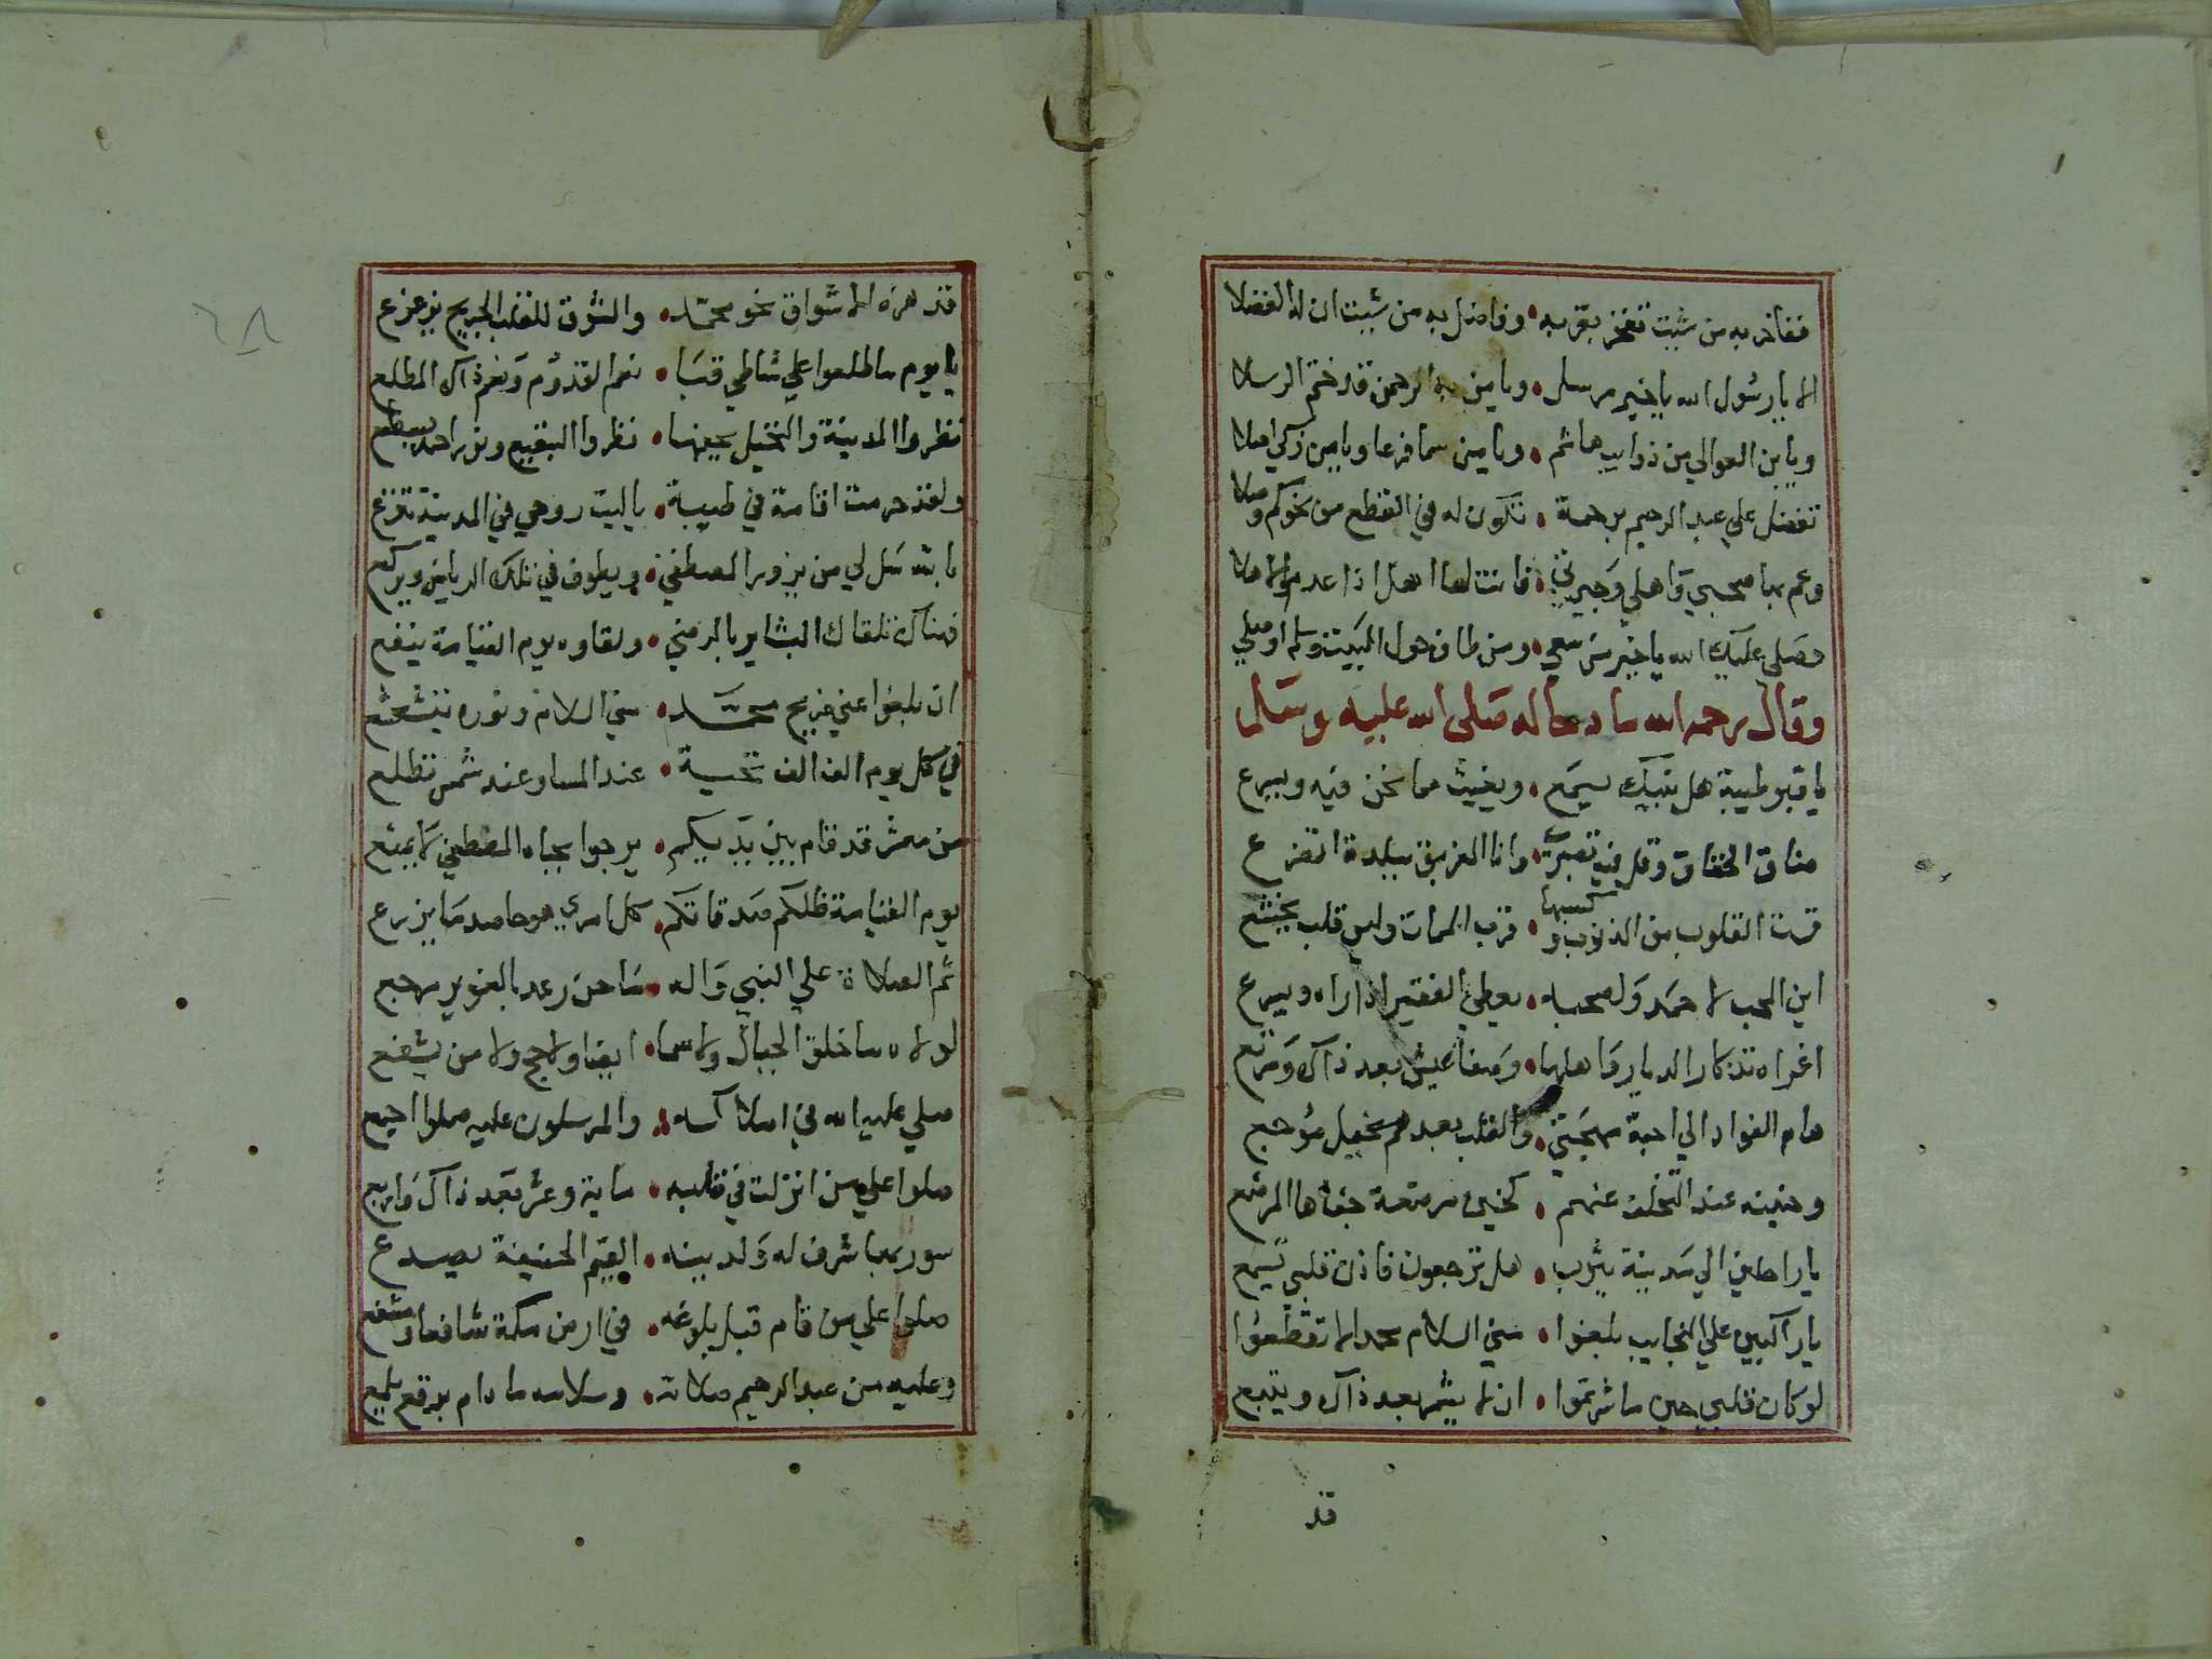 ففاخر به من شيت تفخر بقربه • وفاضل به من شيت ان له الفضلا
الا يا رسول الله يا خير مرسل • ويا من به الرحمن قد ختم الرسلا
ويا بن العوالي من ذوايب هاشم • ويا من سما فرعا ويا من زكي اصلا
تفضل علي عبد الرحيم برحمة • تكون له في القطع من نحوكم وصلا
وعم بها صحبي واهلي وجيرتي • فانت لها اهل اذا عدموا الاهلا
وصلى عليك الله يا خير من سعي • ومن طاف حول البيت وسلم او صلي
وقال رحمه الله مادحا له صلى الله عليه وسلم
يا قبر طيبة هل نبيك يسمع • ويغيث مما نحن فيه ويسرع
ضاق الخناق وقل فيه تصبري • وانا الغريق ببلدة اتضرع
قست القلوب من الذنوب وكسبها • قرب الممات وليس قلب يخشع
اين المحب لاحمد ولصحبه • يعطي الفقير اذا راه ويسرع
اغراه تذكار الديار واهلها • وصفا عيش بعد ذاك ومرتع
هام الفواد الي احبة مهجتي • والقلب بعدهم نحيل موجع
وحنينه عند التخلف عنهم • كحنين مرضعة جفاها المرضع
يا راحلين الي مدينة يثرب • هل ترجعون فاذن قلبي تسمع
يا راكبين علي النجايب بلغوا • مني السلام محمدا لا تقطعوا
لو كان قلبي حين ما شرعتموا • ان لا يثم بعد ذاك ويتبع
قد
قد هزه الاشواق نحو محمد • والشوق للقلب الجريح يزعزع
يا يوم ما طلعوا علي شاطي قبا • نعم القدوم ونعم ذاك المطلع
نظروا المدينة والنخيل بعينها • نظروا البقيع ونور احمد يسطع
ولقد حرمت اقامة في طيبة • يا ليت روحي في المدينة تنزع
بالله سل لي من يزور المصطفي • ويطوف في تلك الرياض ويركع
فهناك تلقاك البشاير بالرضي • ولقاوه يوم القيامة ينفع
ان بلغوا عني ضريح محمد • مني السلام ونوره يتشعشع
في كل يوم الف الف تحية • عند المسا وعند شمس تطلع
من معشر قد قام بين يديكم • يرجوا بجاه المصطفي لا يمنع
يوم القيامة ظلكم صدقاتكم • كل امري هو حاصد ما يزرع
ثم الصلاة علي النبي واله • ما حن رعد بالغوير يهجع
لولاه ما خلق الجبال ولا سما • ايضا ولا حج ولا من يشفع
صلي عليه الله في املاكه • والمرسلون عليه صلوا اجمع
صلوا علي من انزلت في قلبه • ماية وعشر بعد ذاك واربع
سور بها شرف له ولدينه • القيم الحنيفة يصدع
صلوا علي من قام قبل بلوغه • في ارض مكة شافعا ومشفع
وعليه من عبد الرحيم صلاته • وسلامه ما دام برقع يلمع